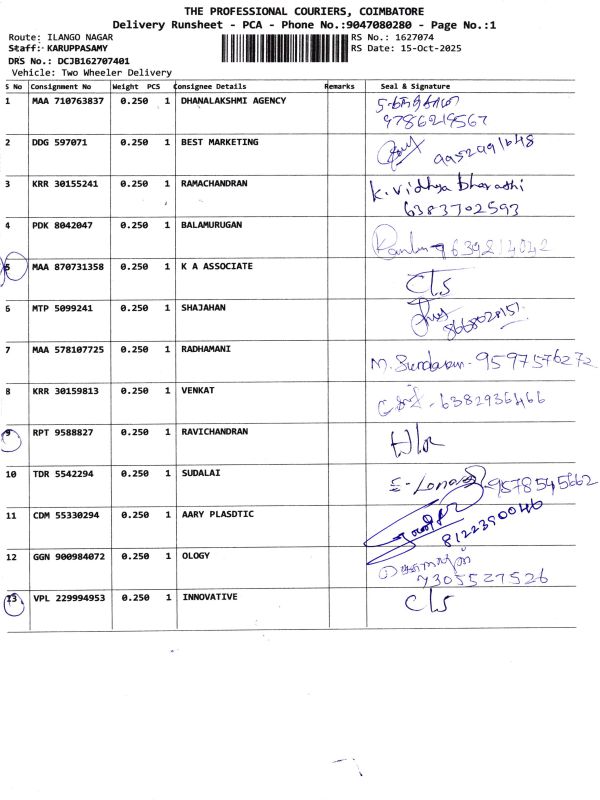 THE PROFESSIONAL COURIERS, COIMBATORE
Delivery Runsheet - PCA - Phone No.:9047080280 - Page No.:1
Route: ILANGO NAGAR RS No.: 1627074
Staff: KARUPPASAMY RS Date: 15-Oct-2025
DRS No.: DCJB162707401
Vehicle: Two Wheeler Delivery
S No Consignment No Weight PCS Consignee Details Remarks Seal & Signature
1 MAA 710763837 0.250 1 DHANALAKSHMI AGENCY
9786219567
2 DDG 597071 0.250 1 BEST MARKETING
3 KRR 30155241 0.250 1 RAMACHANDRAN K. Vidhya bharathi
6383702593
4 PDK 8042047 0.250 1 BALAMURUGAN
5 MAA 870731358 0.250 1 K A ASSOCIATE C/S
6 MTP 5099241 0.250 1 SHAJAHAN
7 MAA 578107725 0.250 1 RADHAMANI M. Sundaram - 9597576272
8 KRR 30159813 0.250 1 VENKAT - 6382936466
9 RPT 9588827 0.250 1 RAVICHANDRAN
10 TDR 5542294 0.250 1 SUDALAI 9578545662
11 CDM 55330294 0.250 1 AARY PLASDTIC 8122390046
12 GGN 900984072 0.250 1 OLOGY
7305527526
13 VPL 229994953 0.250 1 INNOVATIVE C/S